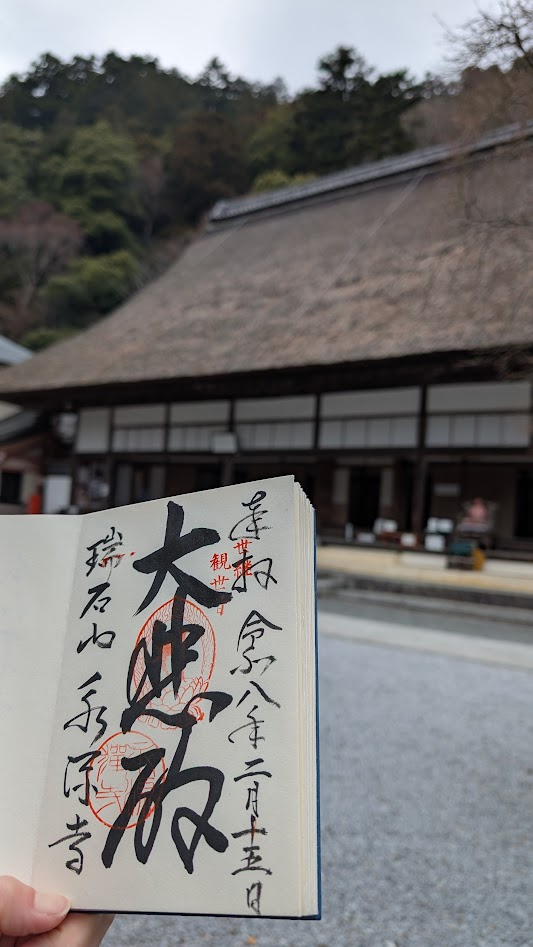 奉拝
令和八年二月十五日
世継
観世音
大悲殿
瑞石山
永源寺